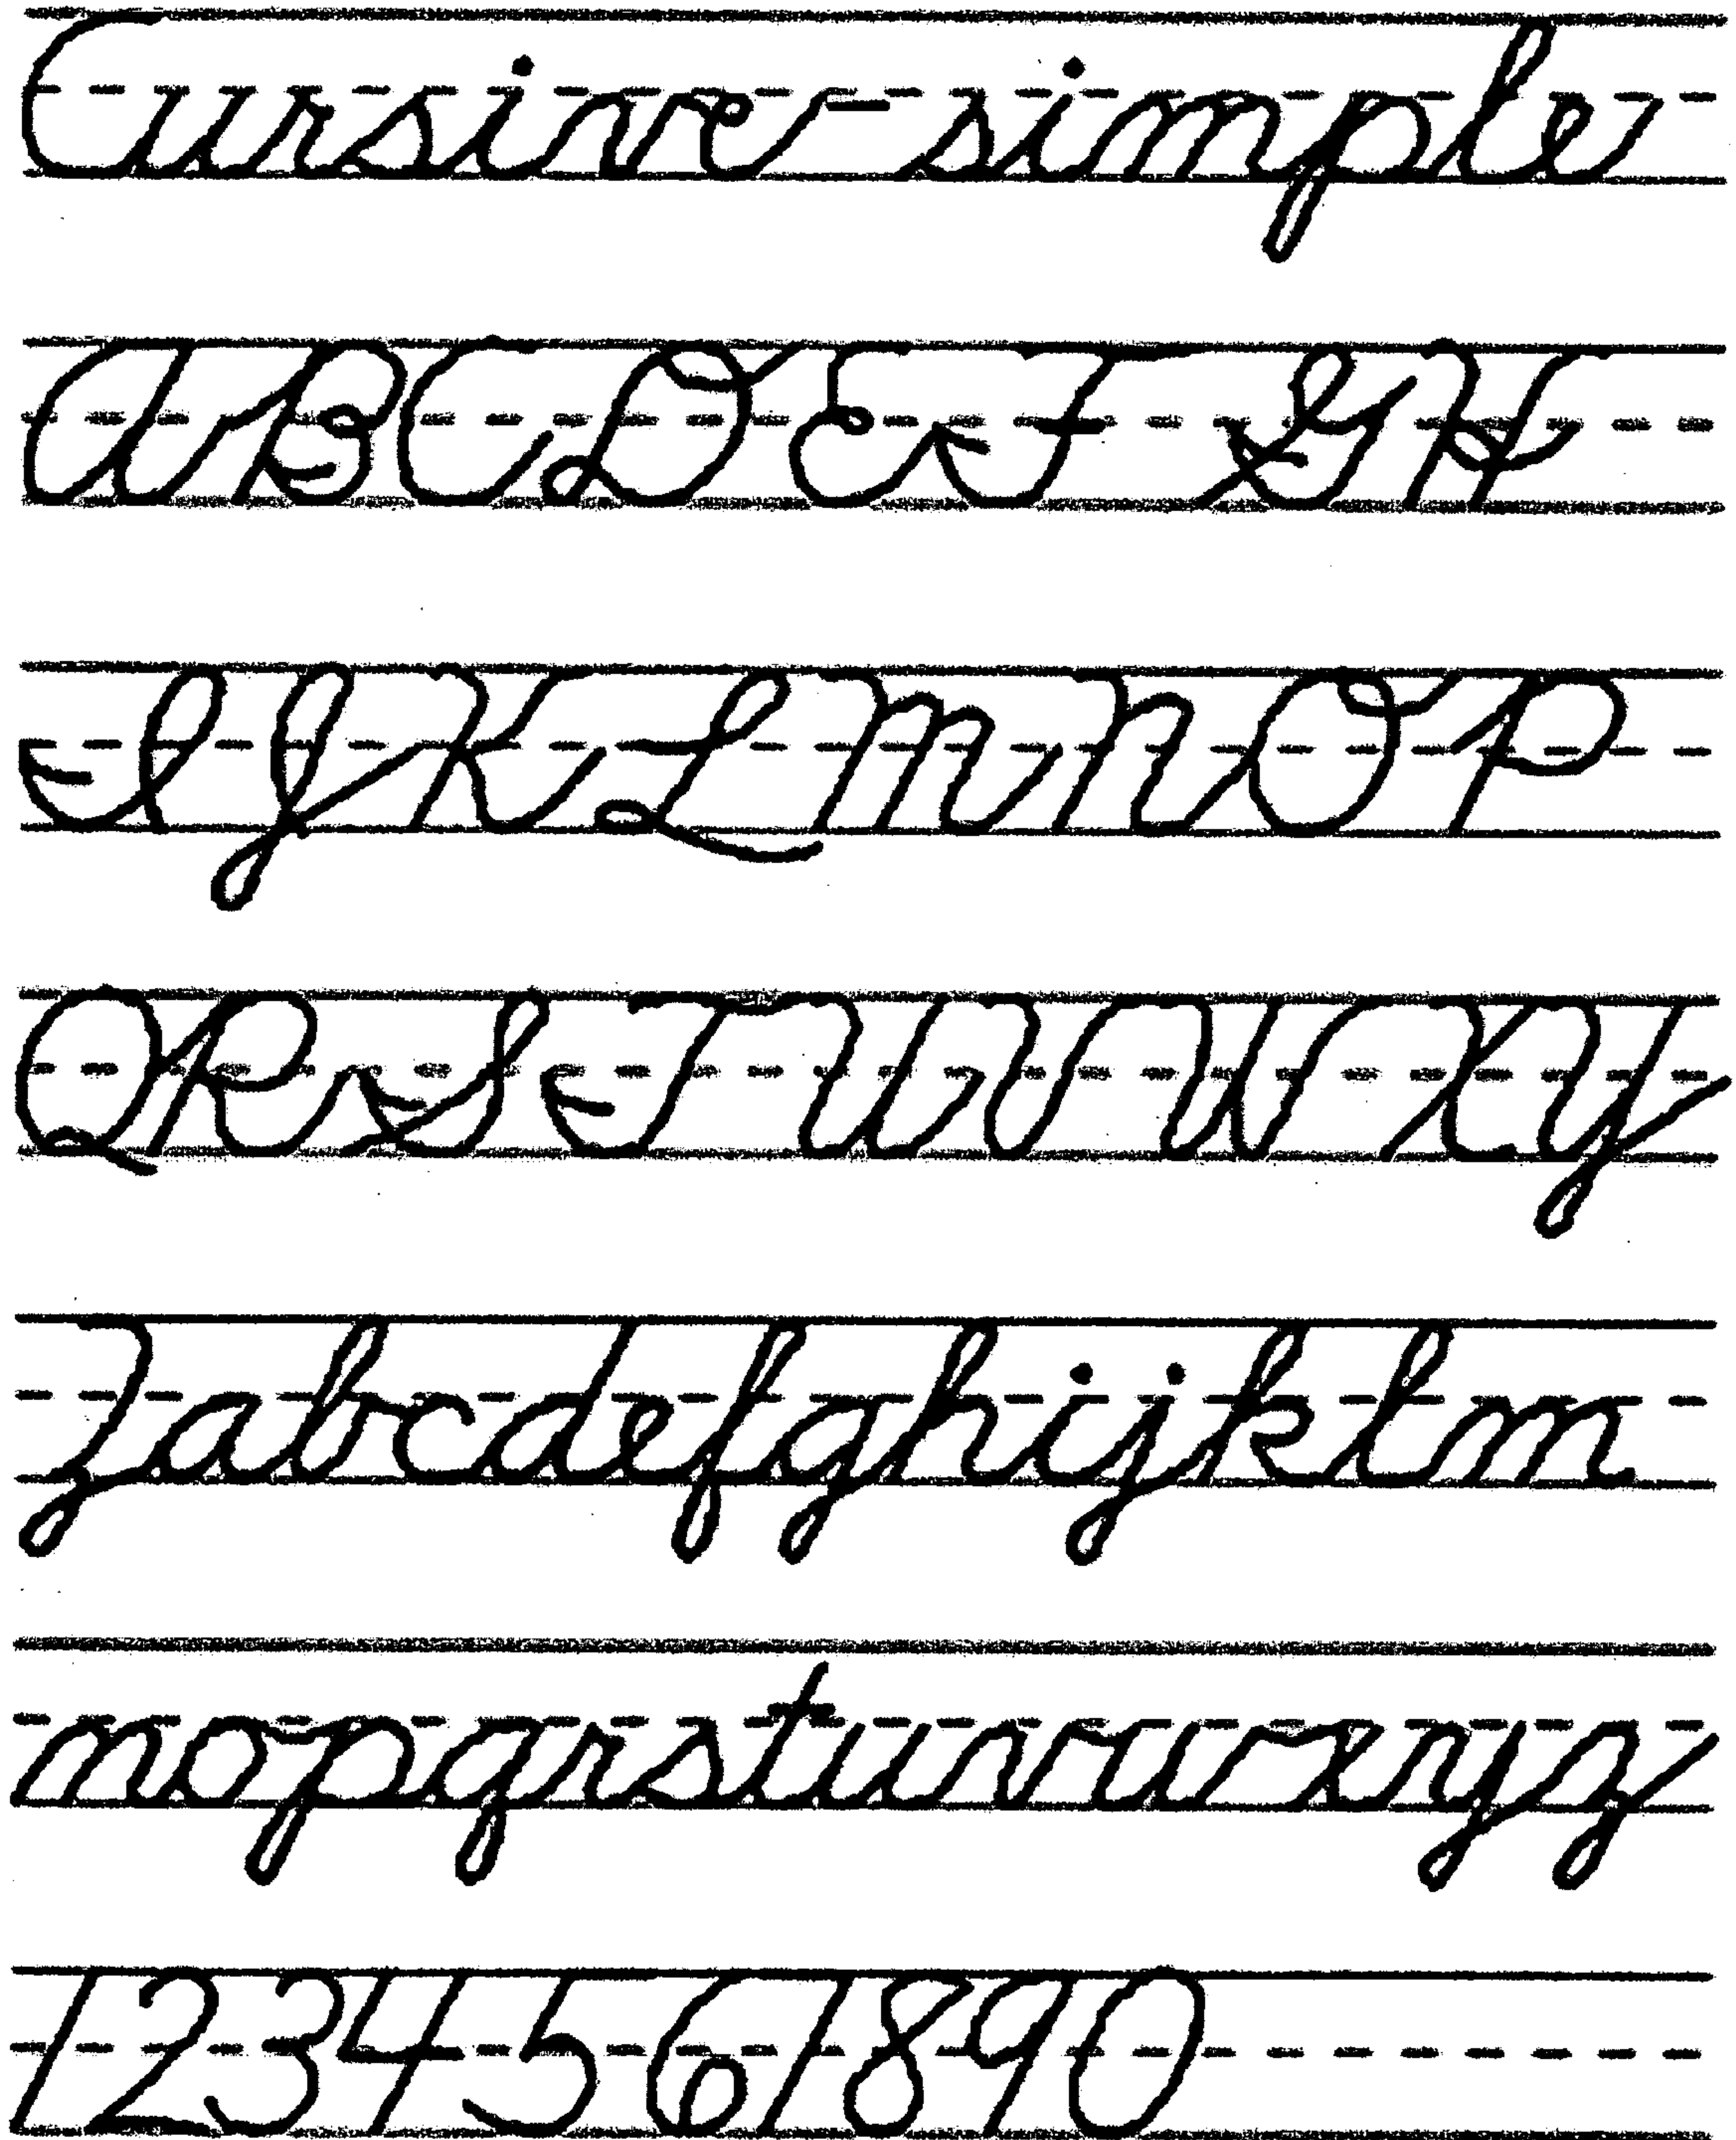 Cursive simple
ABCDEFGH
IJKLMNOP
QRSTUVWXY
Zabcdefghijklm
nopqrstuvwxyz
1234567890